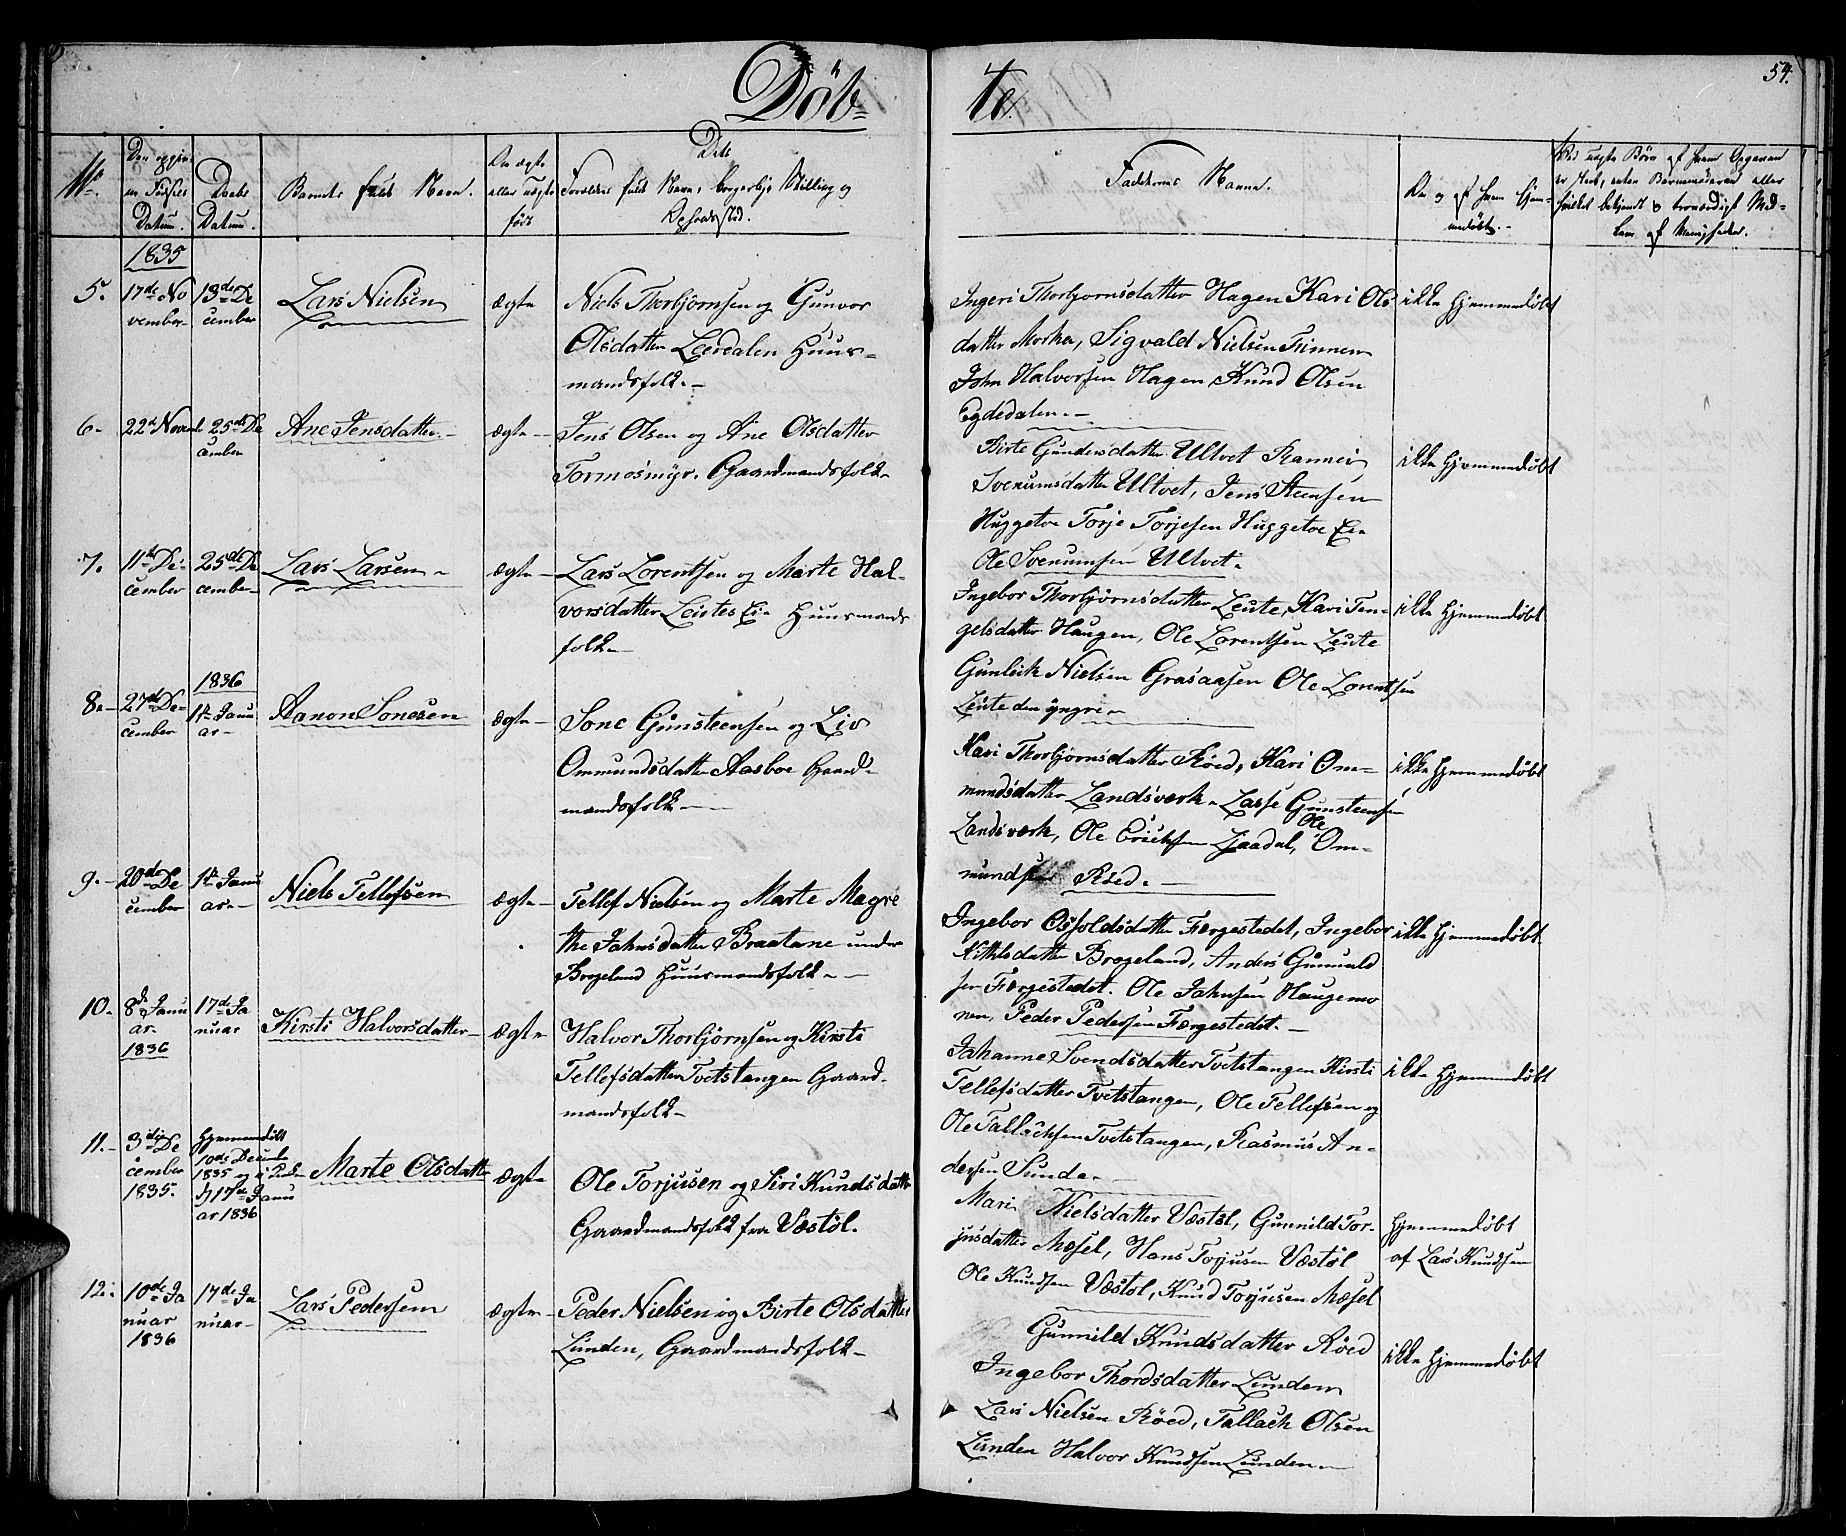 Döb=
te.
54.
No.
Den opgivne
Fødsels
Datum.
Daabs
Datum.
Barnets fulde Navn.
Om ægte
eller uægte
født
Dets
Forældres fulde Navn, borgerlige Stilling og
Opholdssted.
Faddernes Navne.
Om og af hvem hjem-
medøbt.
1835
5. 17de No
vember
13de De
cember
Lars Nielsen
ægte
Niels Thorbjørnsen og Gunvor
Olsdatter Leerdalen Huus-
mandsfolk.
Ingeri Thorbjørnsdatter Hagen Kari Ols
datter Morka, Sigvald Nielsen Trinnem
John Halvorsen Hagen Knud Olsen
Egdedalen.
ikke hjemmedøbt
6. 22d Novem
25de De
cember
Ane Jensdatter.
ægte
Jens Olsen og Ane Olsdatter
Tormosmyr. Gaardmandsfolk
Birte Gundersdatter Ultvet Rannei
Svenumsdatter Ultvet, Jens Steensen
Huggetoe Torje Torjesen Huggetoe Ei.
Ole Svenumsen Ultvet.
ikke hjemmedøbt
7. 11te De-
cember
25de De
cember
Lars Larsen
ægte
Lars Lorentsen og Marte Hal-
vorsdatter Leutes Ei. Huusmands
folk
Ingebor Thorbjørnsdatter Leute, Kari Ten-
gelsdatter Haugen, Ole Lorentsen Leute
Gunleik Nielsen Grasaasen Ole Lorentsen
Leute den yngre
ikke hjemmedøbt
8. 27de De-
cember
1836
1te Janu
ar
Aanon Sonesen
ægte
Sone Gunsteensen og Liv
Ommundsdatter Aasboe Gaard-
mandsfolk
Kari Thorbjørnsdatter Röed, Kari Om-
mundsdatter Landsværk, Lasse Gunsteensen
Landsværk, Ole Erichsen Laadal, Ole Om-
mundsen Röed.
ikke hjemmedøbt
9. 20de De
cember
1te Janu
ar
Niels Tellefsen
ægte
Tellef Nielsen og Marte Magre
the Jahnsdatter Braatane under
Brogeland Huusmandsfolk
Ingebor Osfoldsdatter Færgestedet, Ingebor
Kittelsdatter Brogeland, Anders Gunuald
sen Færgestedet. Ole Jahnsen Haugemo
nen, Peder Pedersen Færgestedet.
ikke hjemmedøbt
10. 8de Janu
ar
1836
17de Ja
nuar
Kirsti Halvorsdatter
ægte
Halvor Thorbjørnsen og Kirsti
Tellefsdatter Tvetstangen Gaard-
mandsfolk
Johanne Svendsdatter Tvetstangen Kirsti
Tellefsdatter Tvetstangen, Ole Tellefsen og
Ole Tallachsen Tvetstangen, Rasmus An-
dersen Sunde
ikke hjemmedøbt
11. 3die De
cember
1835.
Hjemmedøbt
10de Decemb
1835 og i
17de Janu
ar 1836
Marte Olsdatter
ægte
Ole Torjusen og Siri Knudsdatter
Gaardmandsfolk fra Væstöl.
Mari Nielsdatter Væstöl, Gunnild Tor-
jusdatter Mæsel, Hans Torjusen Væstöl
Ole Knudsen Væstöl, Knud Torjusen Mæsel
Hjemmedøbt
af Lars Knudsen
12. 10de Ja
nuar
1836
17de Ja
nuar
Lars Pedersen
ægte
Peder Nielsen og Birte Olsdatter
Lunden, Gaardmandsfolk
Gunnild Knudsdatter Röed
Ingebor Thordsdatter Lunden
Lars Nielsen Röed, Tallach Olsen
Lunden Halvor Knudsen Lunden
ikke hjemmedøbt